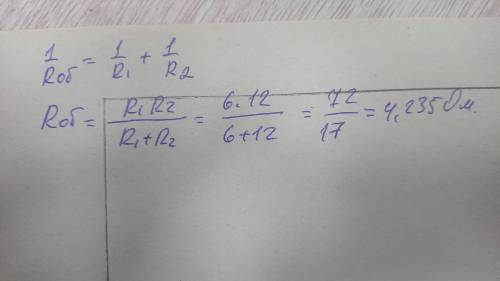 1/Rоб = 1/R1 + 1/R2
Rоб = R1R2/R1+R2 = 6·12/6+12 = 72/17 = 4,235 Ом.